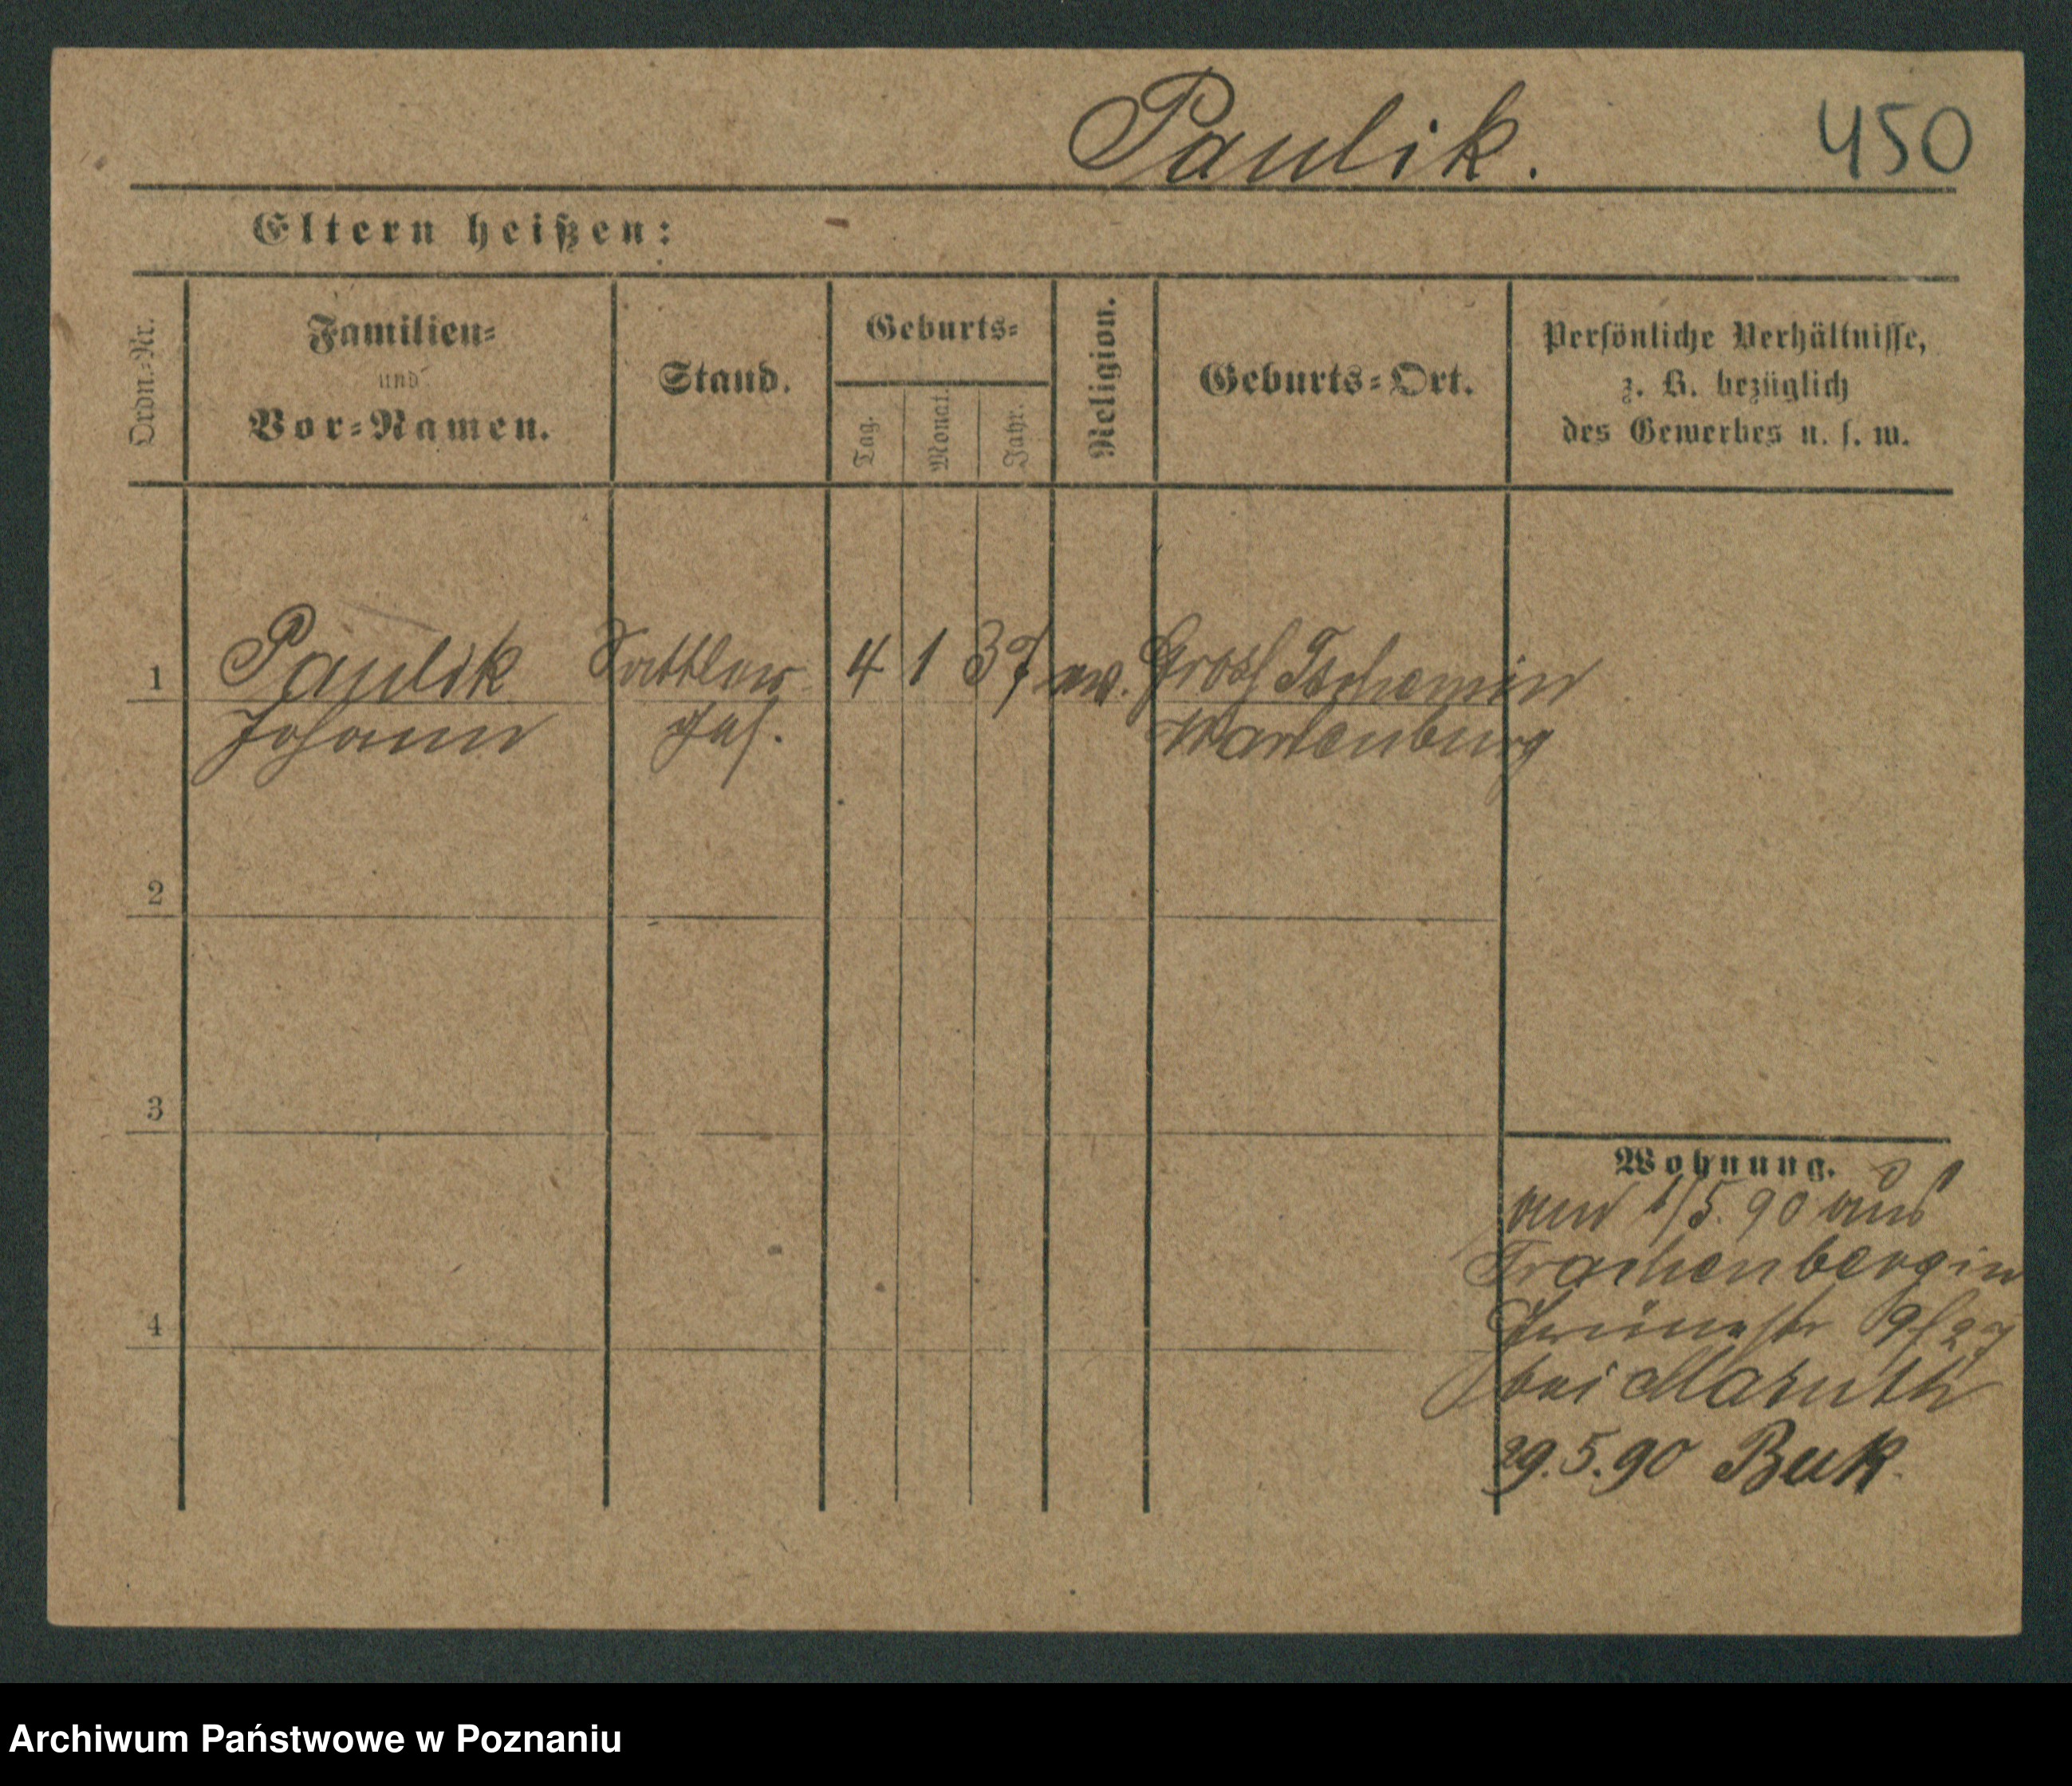 Paulik. 450
Eltern heißen:
Ordn.-Nr.
Familien-
und
Vor-Namen.
Stand.
Geburts-
Tag.
Monat.
Jahr.
Religion.
Geburts-Ort.
Persönliche Verhältnisse,
z. B. bezüglich
des Gewerbes u. s. w.
1 Paulik Sattler 4 1 37 ev. Gross
Johann Ges. Wartenburg
2
3
4
Wohnung.
1/5. 90 aus
Trachenberg in
bei
29.5.90 Buk.
Archiwum Państwowe w Poznaniu